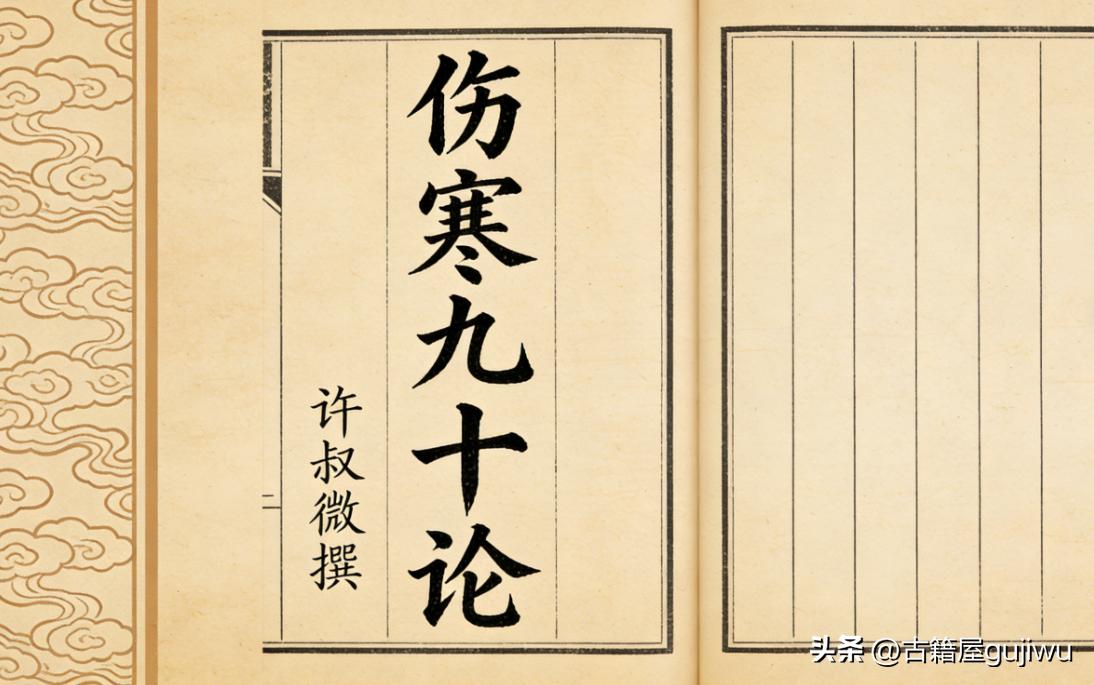 伤寒九十论
许叔微撰
头条 @古籍屋gujiwu